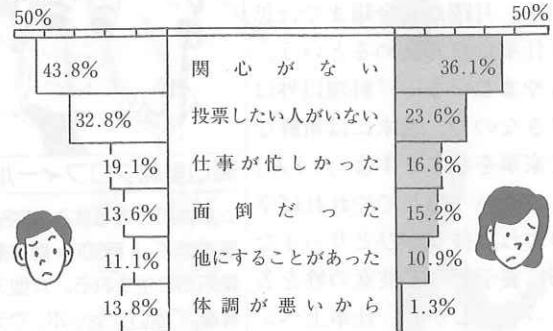 50% 50%
43.8% 関心がない 36.1%
32.8% 投票したい人がいない 23.6%
19.1% 仕事が忙しかった 16.6%
13.6% 面倒だった 15.2%
11.1% 他にすることがあった 10.9%
13.8% 体調が悪いから 1.3%